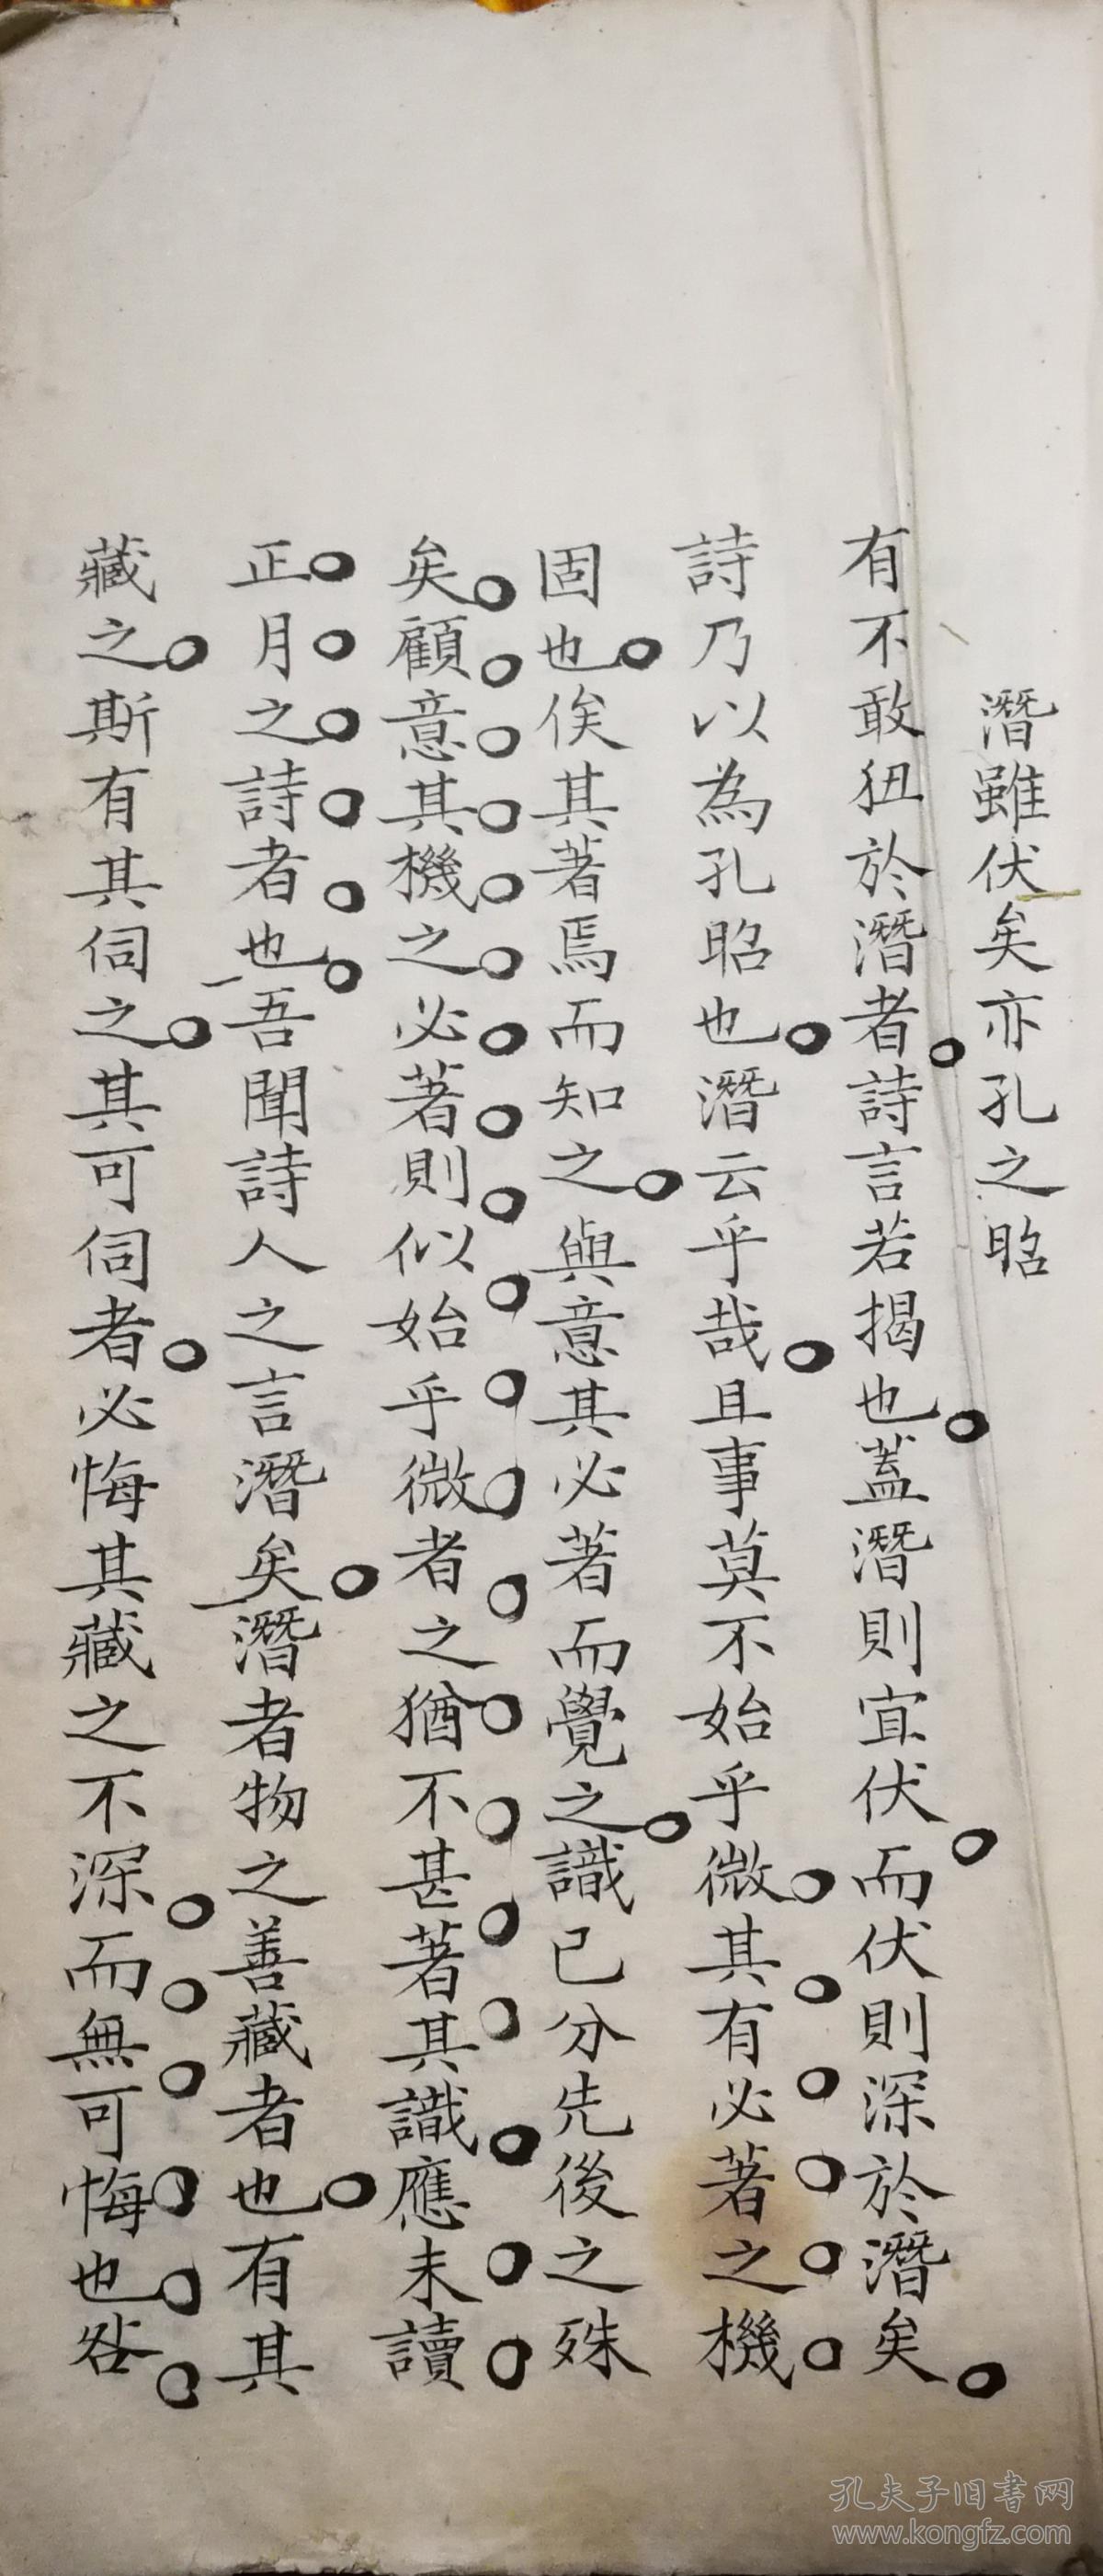 潛雖伏矣亦孔之昭
有不敢狃於潛者詩言若揭也蓋潛則宜伏而伏則深於潛矣
詩乃以為孔昭也潛云乎哉且事莫不始乎微其有必著之機
固也俟其著焉而知之與意其必著而覺之識已分先後之殊
矣顧意其機之必著則似始乎微者之猶不甚著其識應未讀
正月之詩者也吾聞詩人之言潛矣潛者物之善藏者也有其
藏之斯有其伺之其可伺者必悔其藏之不深而無可悔也咎
孔夫子旧书网
www.kongfz.com